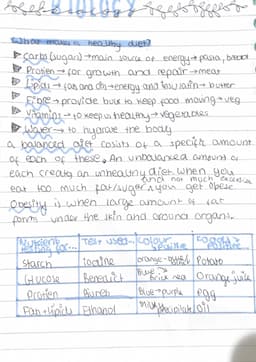 BIOLOGY
What makes a healthy diet?
Carbs (sugars) → main source of energy → pasta, bread
Protien → for growth and repair → meat
Lipids → fats and oils → energy and insulation → butter
Fibre → provide bulk to keep food moving → veg
Vitamins → to keep us healthy → vegetables
Water → to hydrate the body
a balanced diet cosists of a specific amount
of each of these. An unbalanced amount of
each creates an unhealthy diet when you
eat too much fat/sugar and not much excercise you get obese
Obesity is when large amount of fat
form under the skin and around organs.
Nutrient testing for... Test used... Colour positive
Starch Iodine orange → Potato
Glucose Benedict Blue → brick red Orange juice
Protien Biuret Blue → purple egg
Fat + lipids Ethanol milky precipitate oil